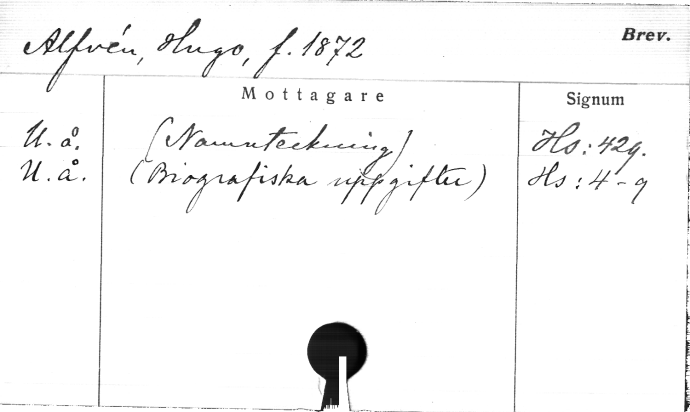 Alfvén, Hugo, f. 1872
Brev.
Mottagare
Signum
U. å. (Namnteckning) Hs: 42g.
U. å. (Biografiska uppgifter) Hs: 4-q